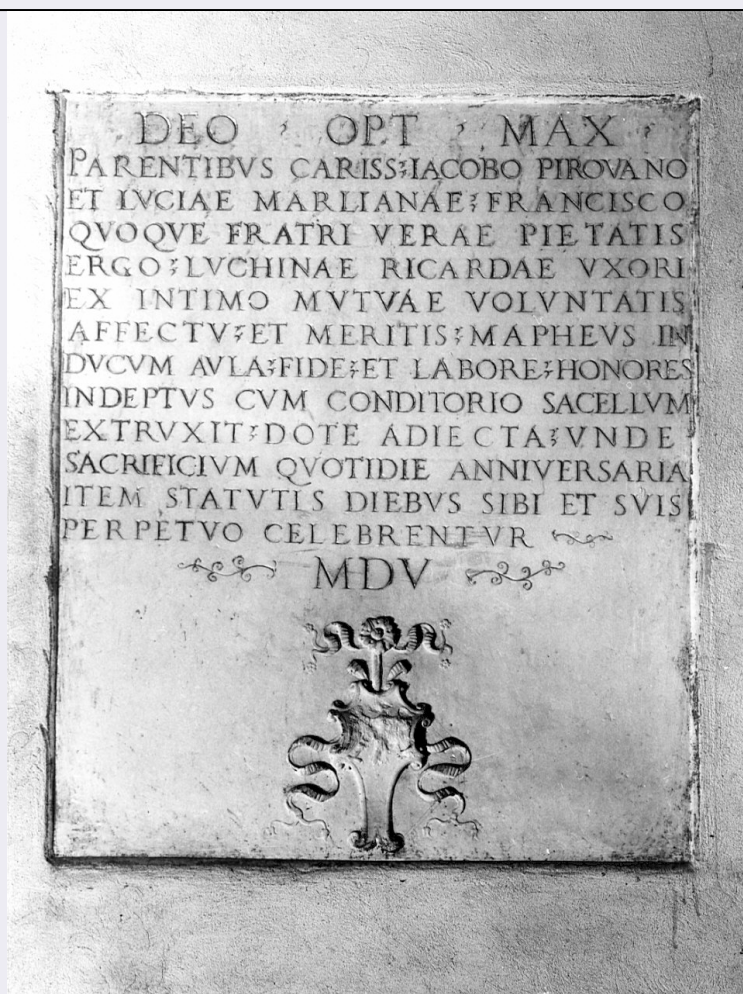 DEO OPT MAX
PARENTIBVS CARISS IACOBO PIROVANO
ET LVCIAE MARLIANAE FRANCISCO
QVOQVE FRATRI VERAE PIETATIS
ERGO LVCHINAE RICARDAE VXORI
EX INTIMO MVTVAE VOLVNTATIS
AFFECTV ET MERITIS MAPHEVS IN
DVCVM AVLA FIDE ET LABORE HONORES
INDEPTVS CVM CONDITORIO SACELLVM
EXTRVXIT DOTE ADIECTA VNDE
SACRIFICIVM QVOTIDIE ANNIVERSARIA
ITEM STATVTIS DIEBVS SIBI ET SVIS
PERPETVO CELEBRENTVR
MDV